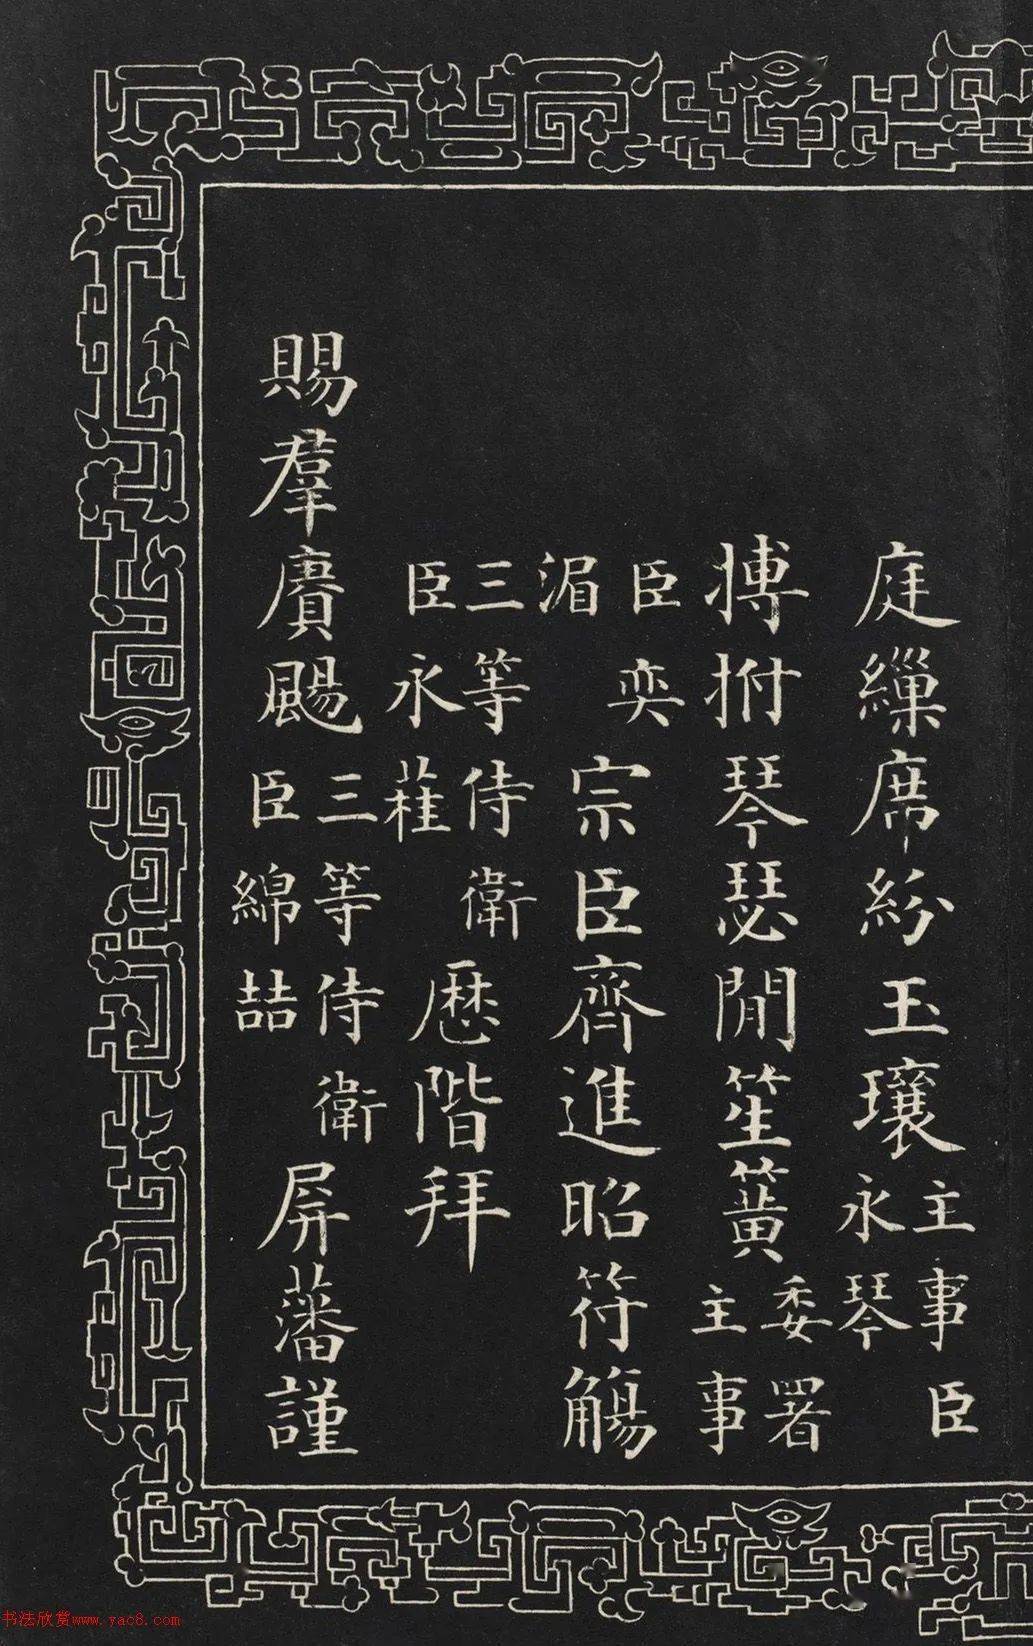 庭繅席紛玉瓖主事臣永琴
搏拊琴瑟閒笙簧委署主事
臣奕湄宗臣齊進昭符觴
三等侍衛臣永蓕歴階拜
賜羣賡颺三等侍衛臣綿喆屏藩謹
书法欣赏www.yac8.com